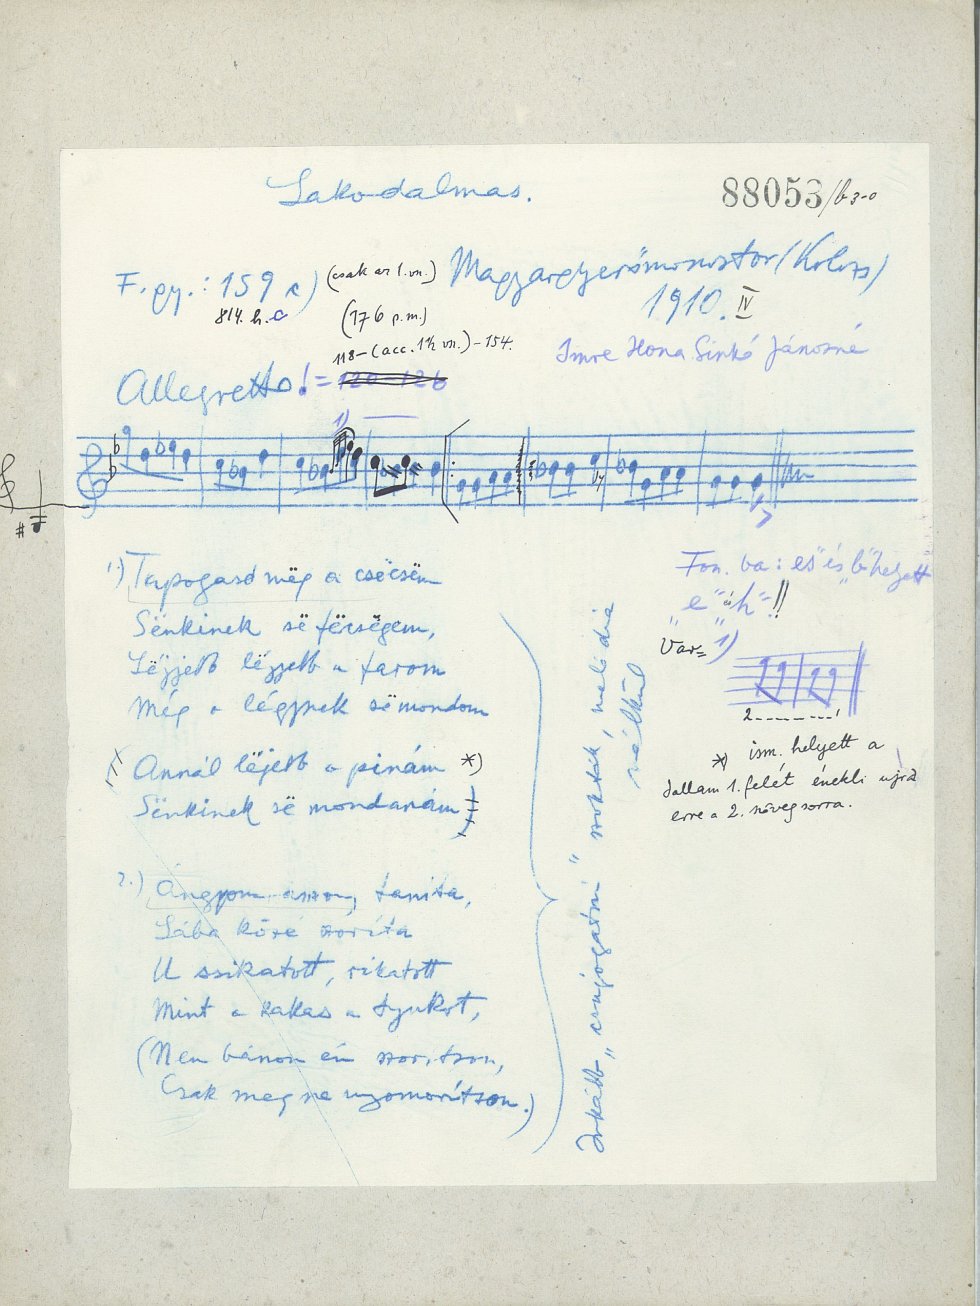 Lakodalmas.
88053/b
F. gy.: 159 c)
(csak az 1. vn.)
Magyargyerőmonostor (Kolozs)
814. h. c
(176 p.m.)
1910. IV
118-(acc. 1½ vn.)-154.
Imre Ilona Sinkó Jánosné
Allegretto ! = 120-126
1)
1.) Tapogasd mëg a csëcsëm
Sënkinek së
Lëjjebb lëjjebb a farom
Még a légynek së mondom
(Annál lëjebb a pinám *)
Sënkinek së mondanám)
Fon. ba: es" és "b" helyett
"e" és "h" !!
Var= 1)
2
*) ism. helyett a
dallam 1. felét énekli ujra
erre a 2. szövegsorra.
2.) Ángyom asszony tanita,
Lába köré szorita
Ul ssikatott, rikatott
Mint a kakas a tyukot,
(Nem bánom én szoritson,
Csak meg ne nyomoritson.)
Inkább "csujogatni" szokták, melodia
nélkül